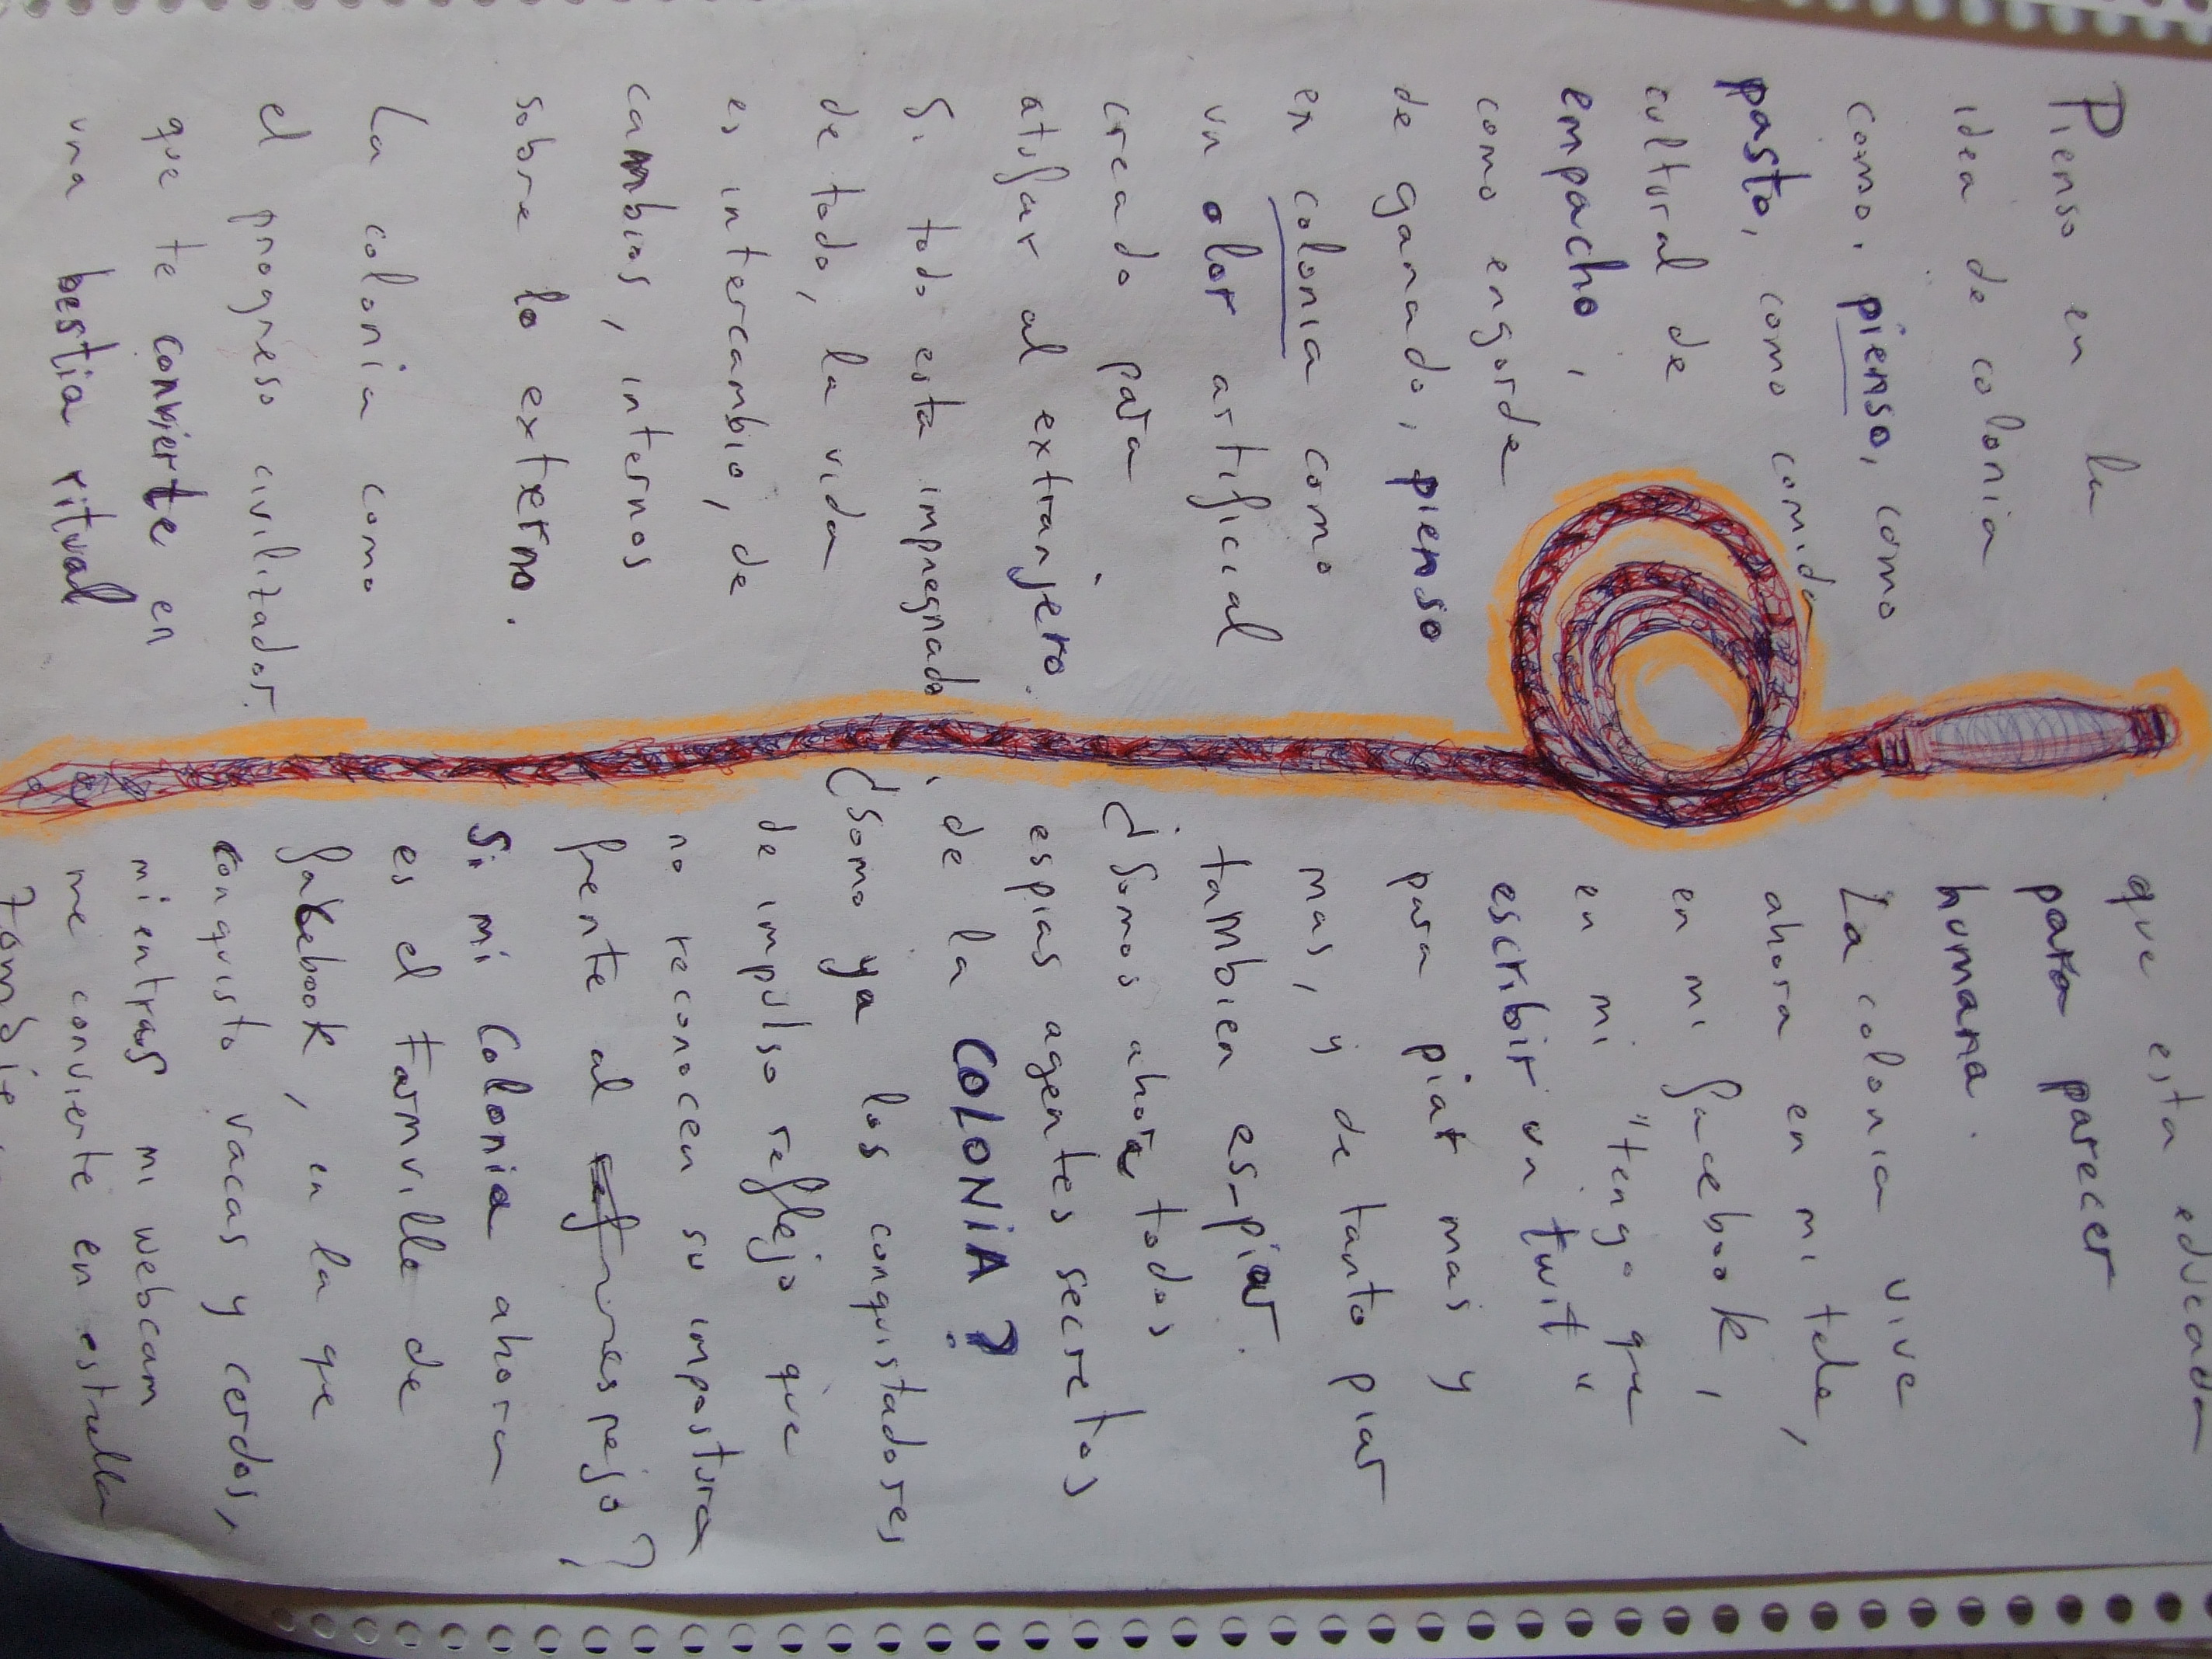 Pienso en la
idea de colonia
como, pienso, como
pasto, como comida
cultural de
empacho,
como engorde
de ganado, pienso
en colonia como
un olor artificial
creado para
atufar al extranjero.
Si todo esta impregnado
de todo, la vida
es intercambio, de
cambios, internos
sobre lo externo.
La colonia como
el progreso civilizador.
que te convierte en
una bestia ritual
que esta educada
para parecer
humana.
La colonia vive
ahora en mi tele,
en mi facebook,
en mi "tengo que
escribir un twit"
para piar mas y
mas, y de tanto piar
tambien es-piar.
¿Somos ahora todos
espias agentes secretos
de la COLONIA?
¿Somo ya los conquistadores
de impulso reflejo que
no reconocen su impostura
frente al espejo?
Si mi colonia ahora
es el farmville de
fakebook, en la que
conquisto vacas y cerdos,
mientras mi webcam
me convierte en estrella